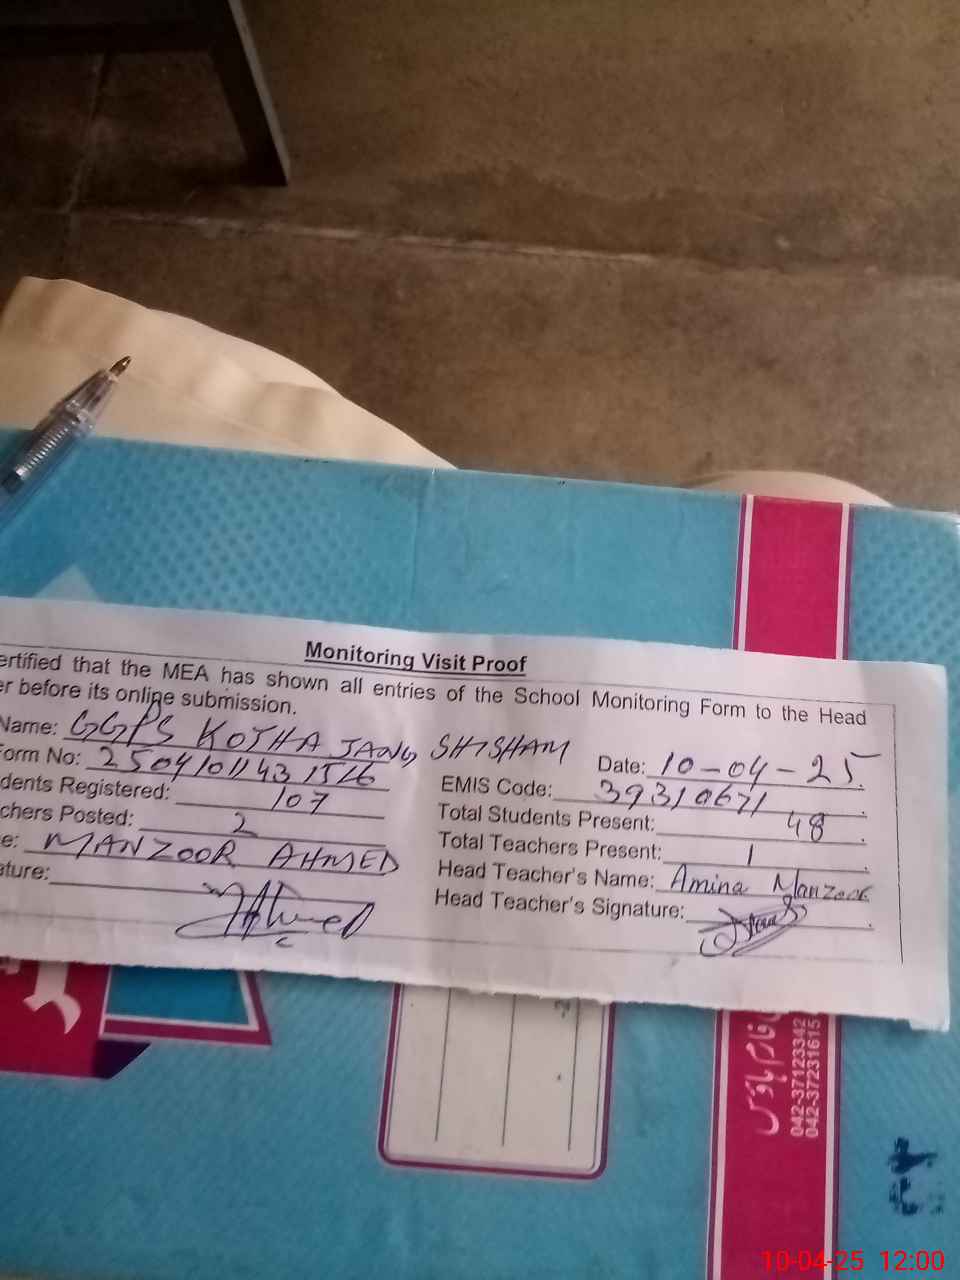 Monitoring Visit Proof
ertified that the MEA has shown all entries of the School Monitoring Form to the Head
er before its online submission.
Name: GGPS KOTHA JANG SHISHAM
Date: 10-04-25.
orm No: 2504101143 1516
EMIS Code: 39310671
dents Registered: 107
Total Students Present: 48
chers Posted: 2
Total Teachers Present: 1
e: MANZOOR AHMED
Head Teacher's Name: Amina Manzoor
ature:
Head Teacher's Signature:
042-37123342
042-37231615
10-04-25 12:00